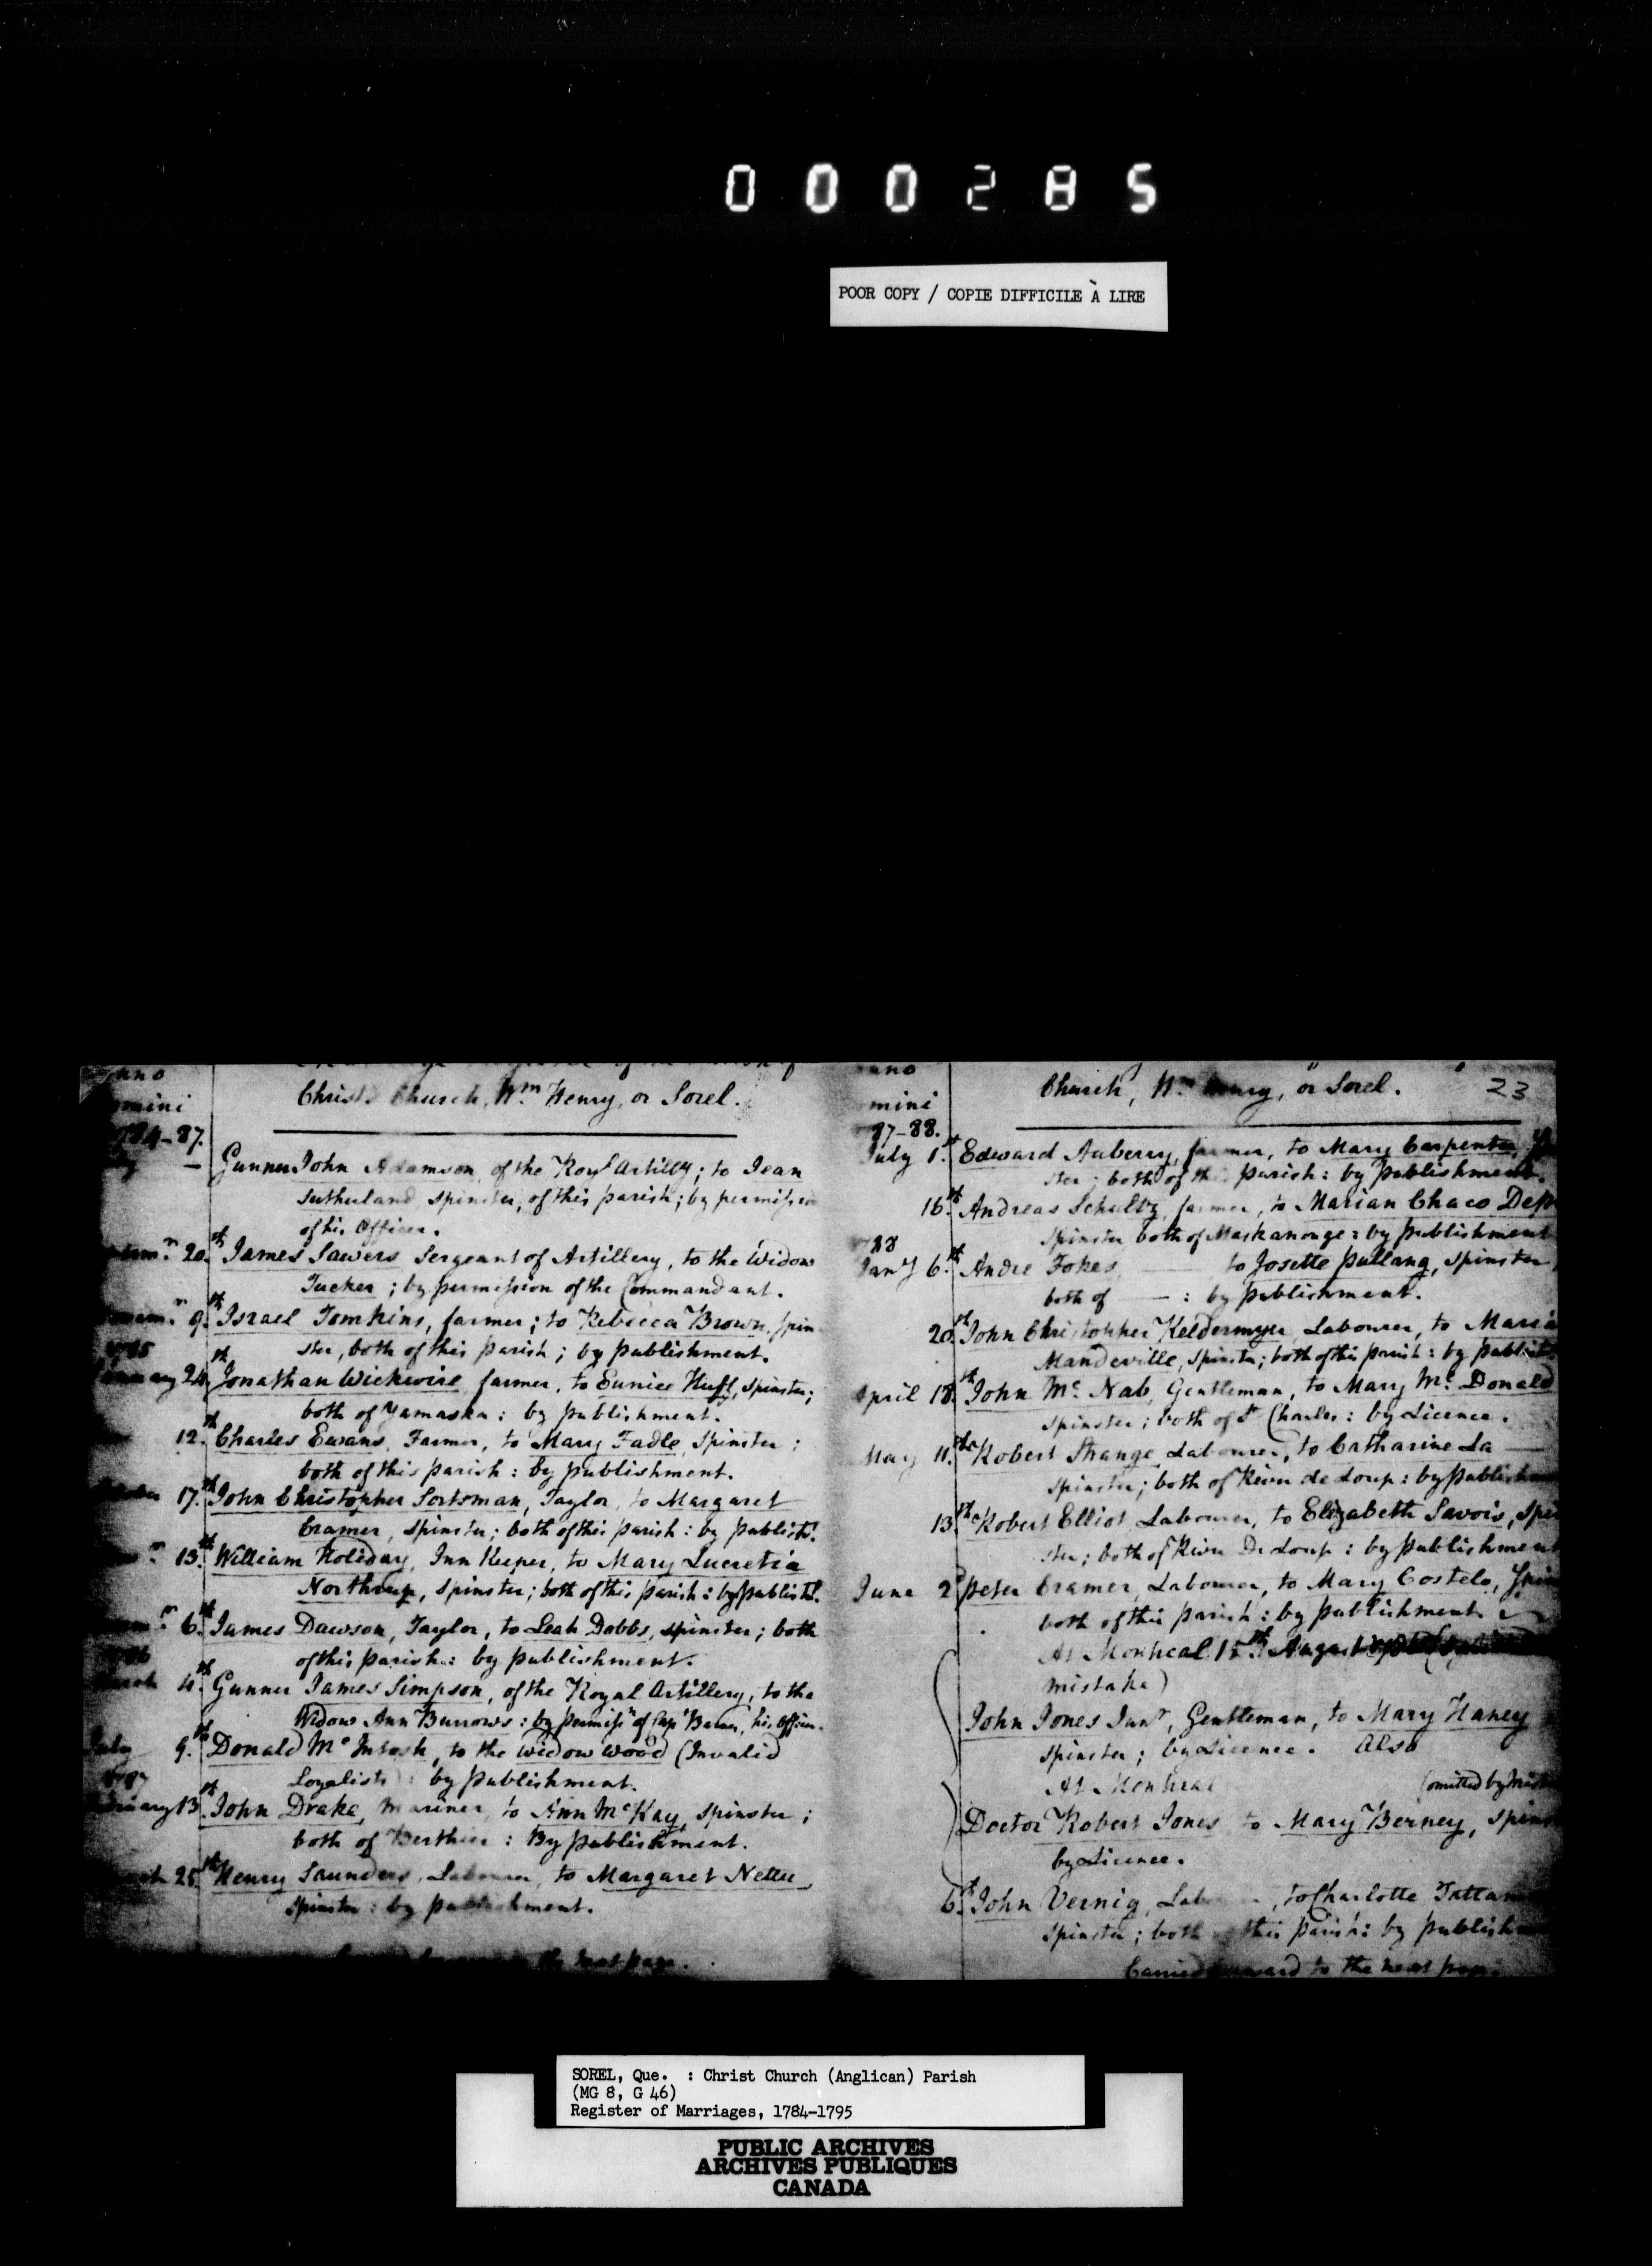 000285
POOR COPY / COPIE DIFFICILE À LIRE
Christ Church, Wm Henry, or Sorel.
84-87.
Gunner John Adamson, of the Royl Artilly; to Jean
Sutherland Spinster, of this parish; by permission
of his Officer.
20th James Sawers Sergeant of Artillery, to the Widow
Tucker; by permission of the Commandant.
9th Israel Tomkins, farmer; to Rebecca Brown, spin
ster, both of this parish; by publishment.
24th Jonathan Wickwire farmer, to Eunice Huff, spinster;
both of Yamaska: by publishment.
12th Charles Ewans, Farmer, to Mary Fadle, Spinster;
both of this parish: by publishment.
17th John Christopher Sortsman, Taylor, to Margaret
Cramer, spinster; both of this parish: by publisht.
13th William Holiday, Inn Keeper, to Mary Lucretia
Northrup, spinster; both of this parish: by publisht.
6th James Dawson, Taylor, to Leah Dobbs, spinster; both
of this parish: by publishment.
4th Gunner James Simpson, of the Royal Artillery, to the
Widow Ann Burrows: by permissn of Capt Barns, his Officer.
July 9th Donald Mc Intosh, to the Widow Wood (Invalid
Loyalists): by publishment.
13th John Drake, Mariner, to Ann McKay, spinster;
both of Berthier: By publishment.
25th Henry Saunders, Labourer, to Margaret Nettle,
Spinster: by publishment.
the next page.
Church, Wm Henry, or Sorel. 23
87-88.
July 1st Edward Auberry, farmer, to Mary Carpenter,
ster; both of this parish: by publishment.
16th Andreas Schultz, farmer, to Marian Chaco
Spinster both of Maskanonge: by publishment
Jany 6th Andre Fokes — to Josette Pullang, spinster
both of — : by publishment.
20th John Christopher Keldermyer, Labourer, to Maria
Mandeville, spinster; both of this parish: by publisht
April 18th John Mc Nab, Gentleman, to Mary Mc Donald
Spinster; both of St Charles: by Licence.
May 11th Robert Strange, Labourer, to Catharine La —
Spinster; both of River de Loup: by
13th Robert Elliot Labourer, to Elizabeth Savois,
ster; both of River De Loup: by publishment
June 2d Peter Cramer, Labourer, to Mary Costelo,
both of this parish: by publishment.
At Montreal
mistake)
John Jones Junr, Gentleman, to Mary Haney
spinster; by Licence. Also
At Montreal (omitted by
Doctor Robert Jones to Mary Berney,
by Licence.
6th John Vernig, to Charlotte
Spinster; both this parish: by
Carried forward to the next page
SOREL, Que. : Christ Church (Anglican) Parish
(MG 8, G 46)
Register of Marriages, 1784-1795
PUBLIC ARCHIVES
ARCHIVES PUBLIQUES
CANADA